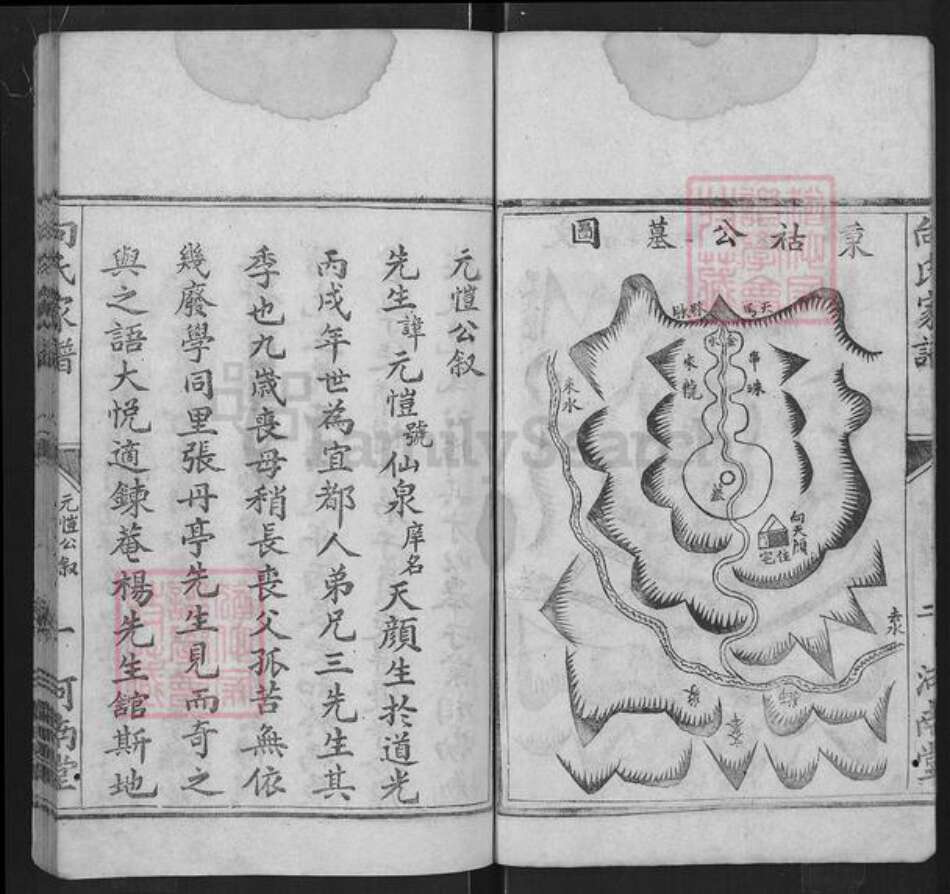 秉祜公墓圖
天馬
金水
串珠
來龍
來水
墓
向天顏
住宅
來水
案
向氏家譜
二
河南堂
元愷公叙
先生諱元愷號仙泉庠名天顔生於道光
丙戌年世為宜都人弟兄三先生其
季也九歲喪母稍長喪父孤苦無依
幾廢學同里張丹亭先生見而奇之
與之語大悦適鍊菴楊先生舘斯地
向氏家譜
元愷公叙
一
河南堂
FamilySearch